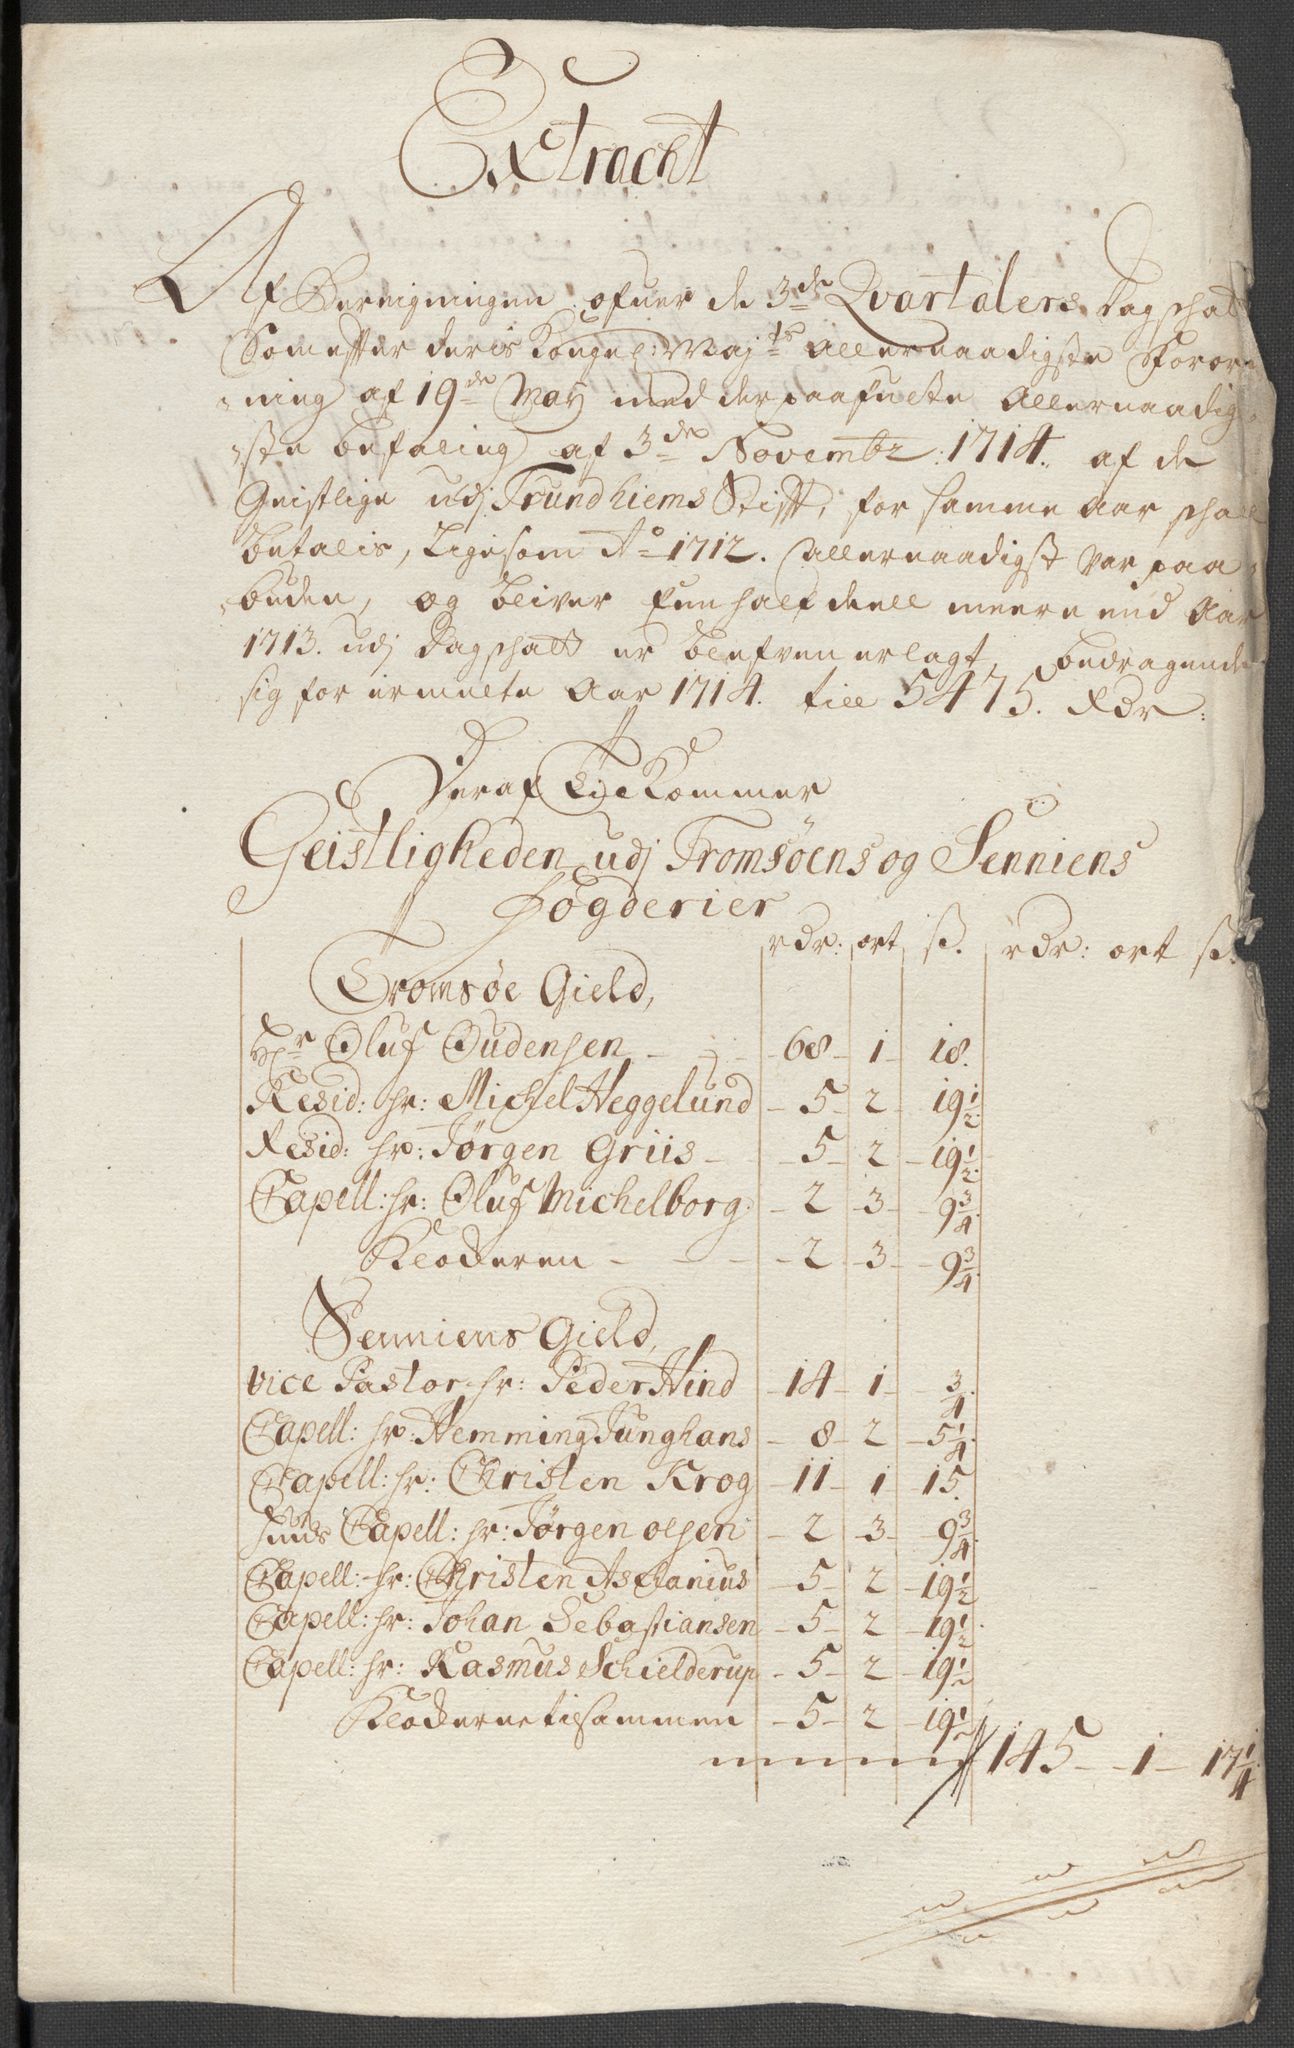 Extracht
Af Beregningen ofuer de 3de Qvartalers dagschatt
Som effter deris Kongel: Maj:ts allernaadigste Foror¬
ning af 19de May med derpaafulte Allernaadig¬
ste befaling af 3de Novembr: 1714. af de
Geistlige udj Trundhiems Stift, for samme aar schall
betalis, ligesom Ao 1712. allernaadigst var paa¬
buden, og bliver een half deell meere end Aar
1713. udj dagschatt er blefven erlagt, bedragende
sig for ermelte Aar 1714. till 5475. Rdr:
Deraf Tilkommer
Geistligheden udj Tromsöens og Senniens
Fögderier
rdr: ort ß. rdr: ort ß.
Tromsöe Gield,
Hr Oluf Oudensen 68 1 18.
Resid: hr: Michel Heggelund 5 2 19½
Resid: hr: Jörgen Griis 5 2 19½.
Capell: hr: Oluf Michelborg 2 3 9¾.
Klockeren 2 3 9¾.
Senniens Gield,
Vice Pastor hr: Peder Hind 14 1 ¾.
Capell: hr: Hemming Junghans 8 2 5¼.
Capell: hr: Christen Krog 11 1 15.
Capell: hr: Jörgen olsen 2 3 9¾.
Capell: hr: Christen Ascanius 5 2 19½
Capell: hr: Johan Sebastiansen 5 2 19½.
Capell: hr: Rasmus Schielderup 5 2 19½
Klockerne tilsammen 5 2 19½
145 1 17¼.